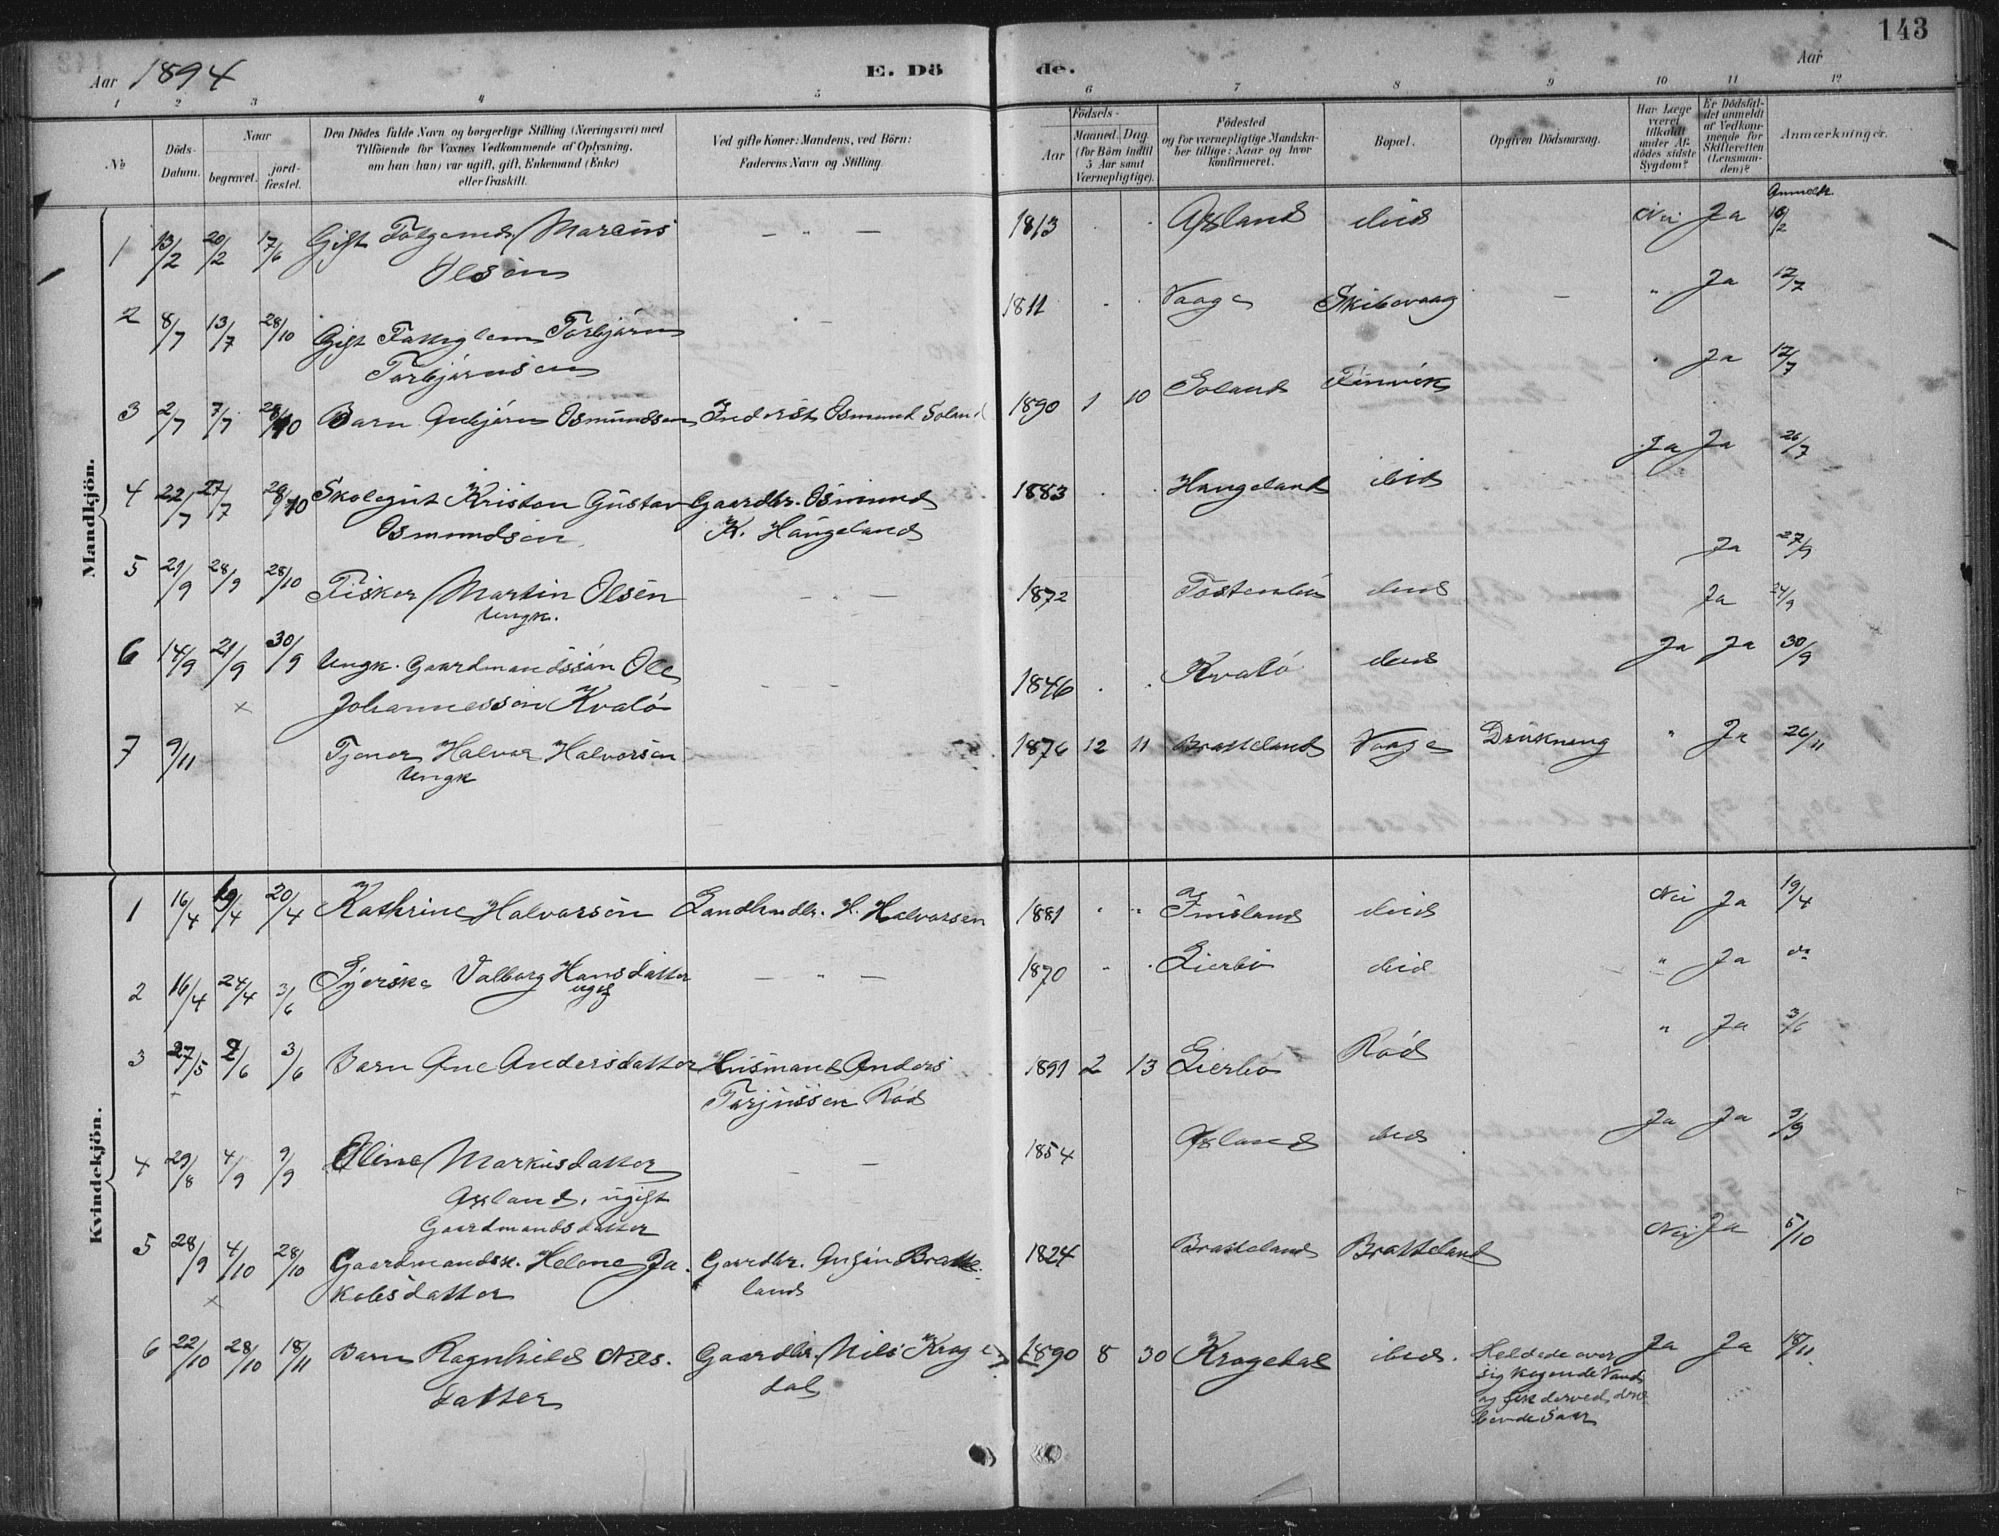 143
Aar 1894 E. Dö de. Aar
1 2 3 4 5 6 7 8 9 10 11 12
No
Döds-Datum.
Naar
begravet.
jord-fæstet.
Den Dödes fulde Navn og borgerlige Stilling (Næringsvei) med
Tilföiende for Voxnes Vedkommende af Oplysning,
om han (hun) var ugift, gift, Enkemand (Enke)
eller fraskilt.
Ved gifte Koner: Mandens, ved Börn:
Faderens Navn og Stilling.
Födsels-
Aar
Maaned. Dag.
(for Börn indtil
5 Aar samt
Værnepligtige).
Födested
og for værnepligtige Mandska-
ber tillige: Naar og hvor
konfirmeret.
Bopæl.
Opgiven Dödsaarsag.
Har Læge
været
tilkaldt
under Af-
dödes sidste
Sygdom?
Er Dödsfal-
det anmeldt
af Vedkom-
mende for
Skifteretten
(Lensman-
den)?
Anmærkninger.
Mandkjön.
Anmeldt
1 13/2 20/2 17/6 Gift Marcus 1813 Axland ibid Nei Ja
Olsen
2 8/7 13/7 28/10 Gift Torbjörn 1811 Vaage Skibevaag " Ja 12/7
Torbjörnsen
3 2/7 7/7 28/10 Barn Osmundsen Osmund Soland 1890 1 10 Soland Finvik Ja 12/7
4 22/7 27/7 28/10 Skolegut Kristen Gustav Gaardbr. Osmund 1883 Haugeland ibid Ja Ja 26/7
Osmundsen K. Haugeland
5 21/9 28/9 28/10 Fisker Martin Olsen 1872 ibid Ja 27/9
Ungk. Ja 24/9
6 14/9 21/9 30/9 Ungk. Gaardmandssön Ole 1846 Kvalö ibid Ja Ja 30/9
Johannessen Kvalö
7 9/11 Tjener Halvor Halvorsen 1876 12 11 Bratteland Vaage Drukning " Ja 26/11
Ungk
Kvindekjön.
1 16/4 19/4 20/4 Kathrine Halvorsen Landhndlr. H. Halvorsen 1881 " " ibid Nei Ja 19/4
2 16/4 24/4 3/6 Valborg Hansdatter — " — 1870 Lierbö ibid " Ja
ugift
3 27/5 2/6 3/6 Barn Ane Andersdatter Husmand Anders 1891 2 13 Lierbö Röd " Ja 3/6
Tarjussen Röd
4 29/8 4/9 9/9 Oline Markusdatter 1854 Axland ibid Ja Ja 3/9
Axland, ugift
Gaardmandsdatter
5 28/9 4/10 28/10 Gaardmandsk. Helene Ja- Gaardbr. Bratte- 1824 Bratteland Bratteland Nei Ja 5/10
kobsdatter land
6 22/10 28/10 18/11 Barn Ragnhild Nils- Gaardbr. Nils Krage- 1890 8 30 Kragedal ibid. Heldede over Ja Ja 18/11
datter dal sig kogende Vand
og fik derved dræ-
bende Saar